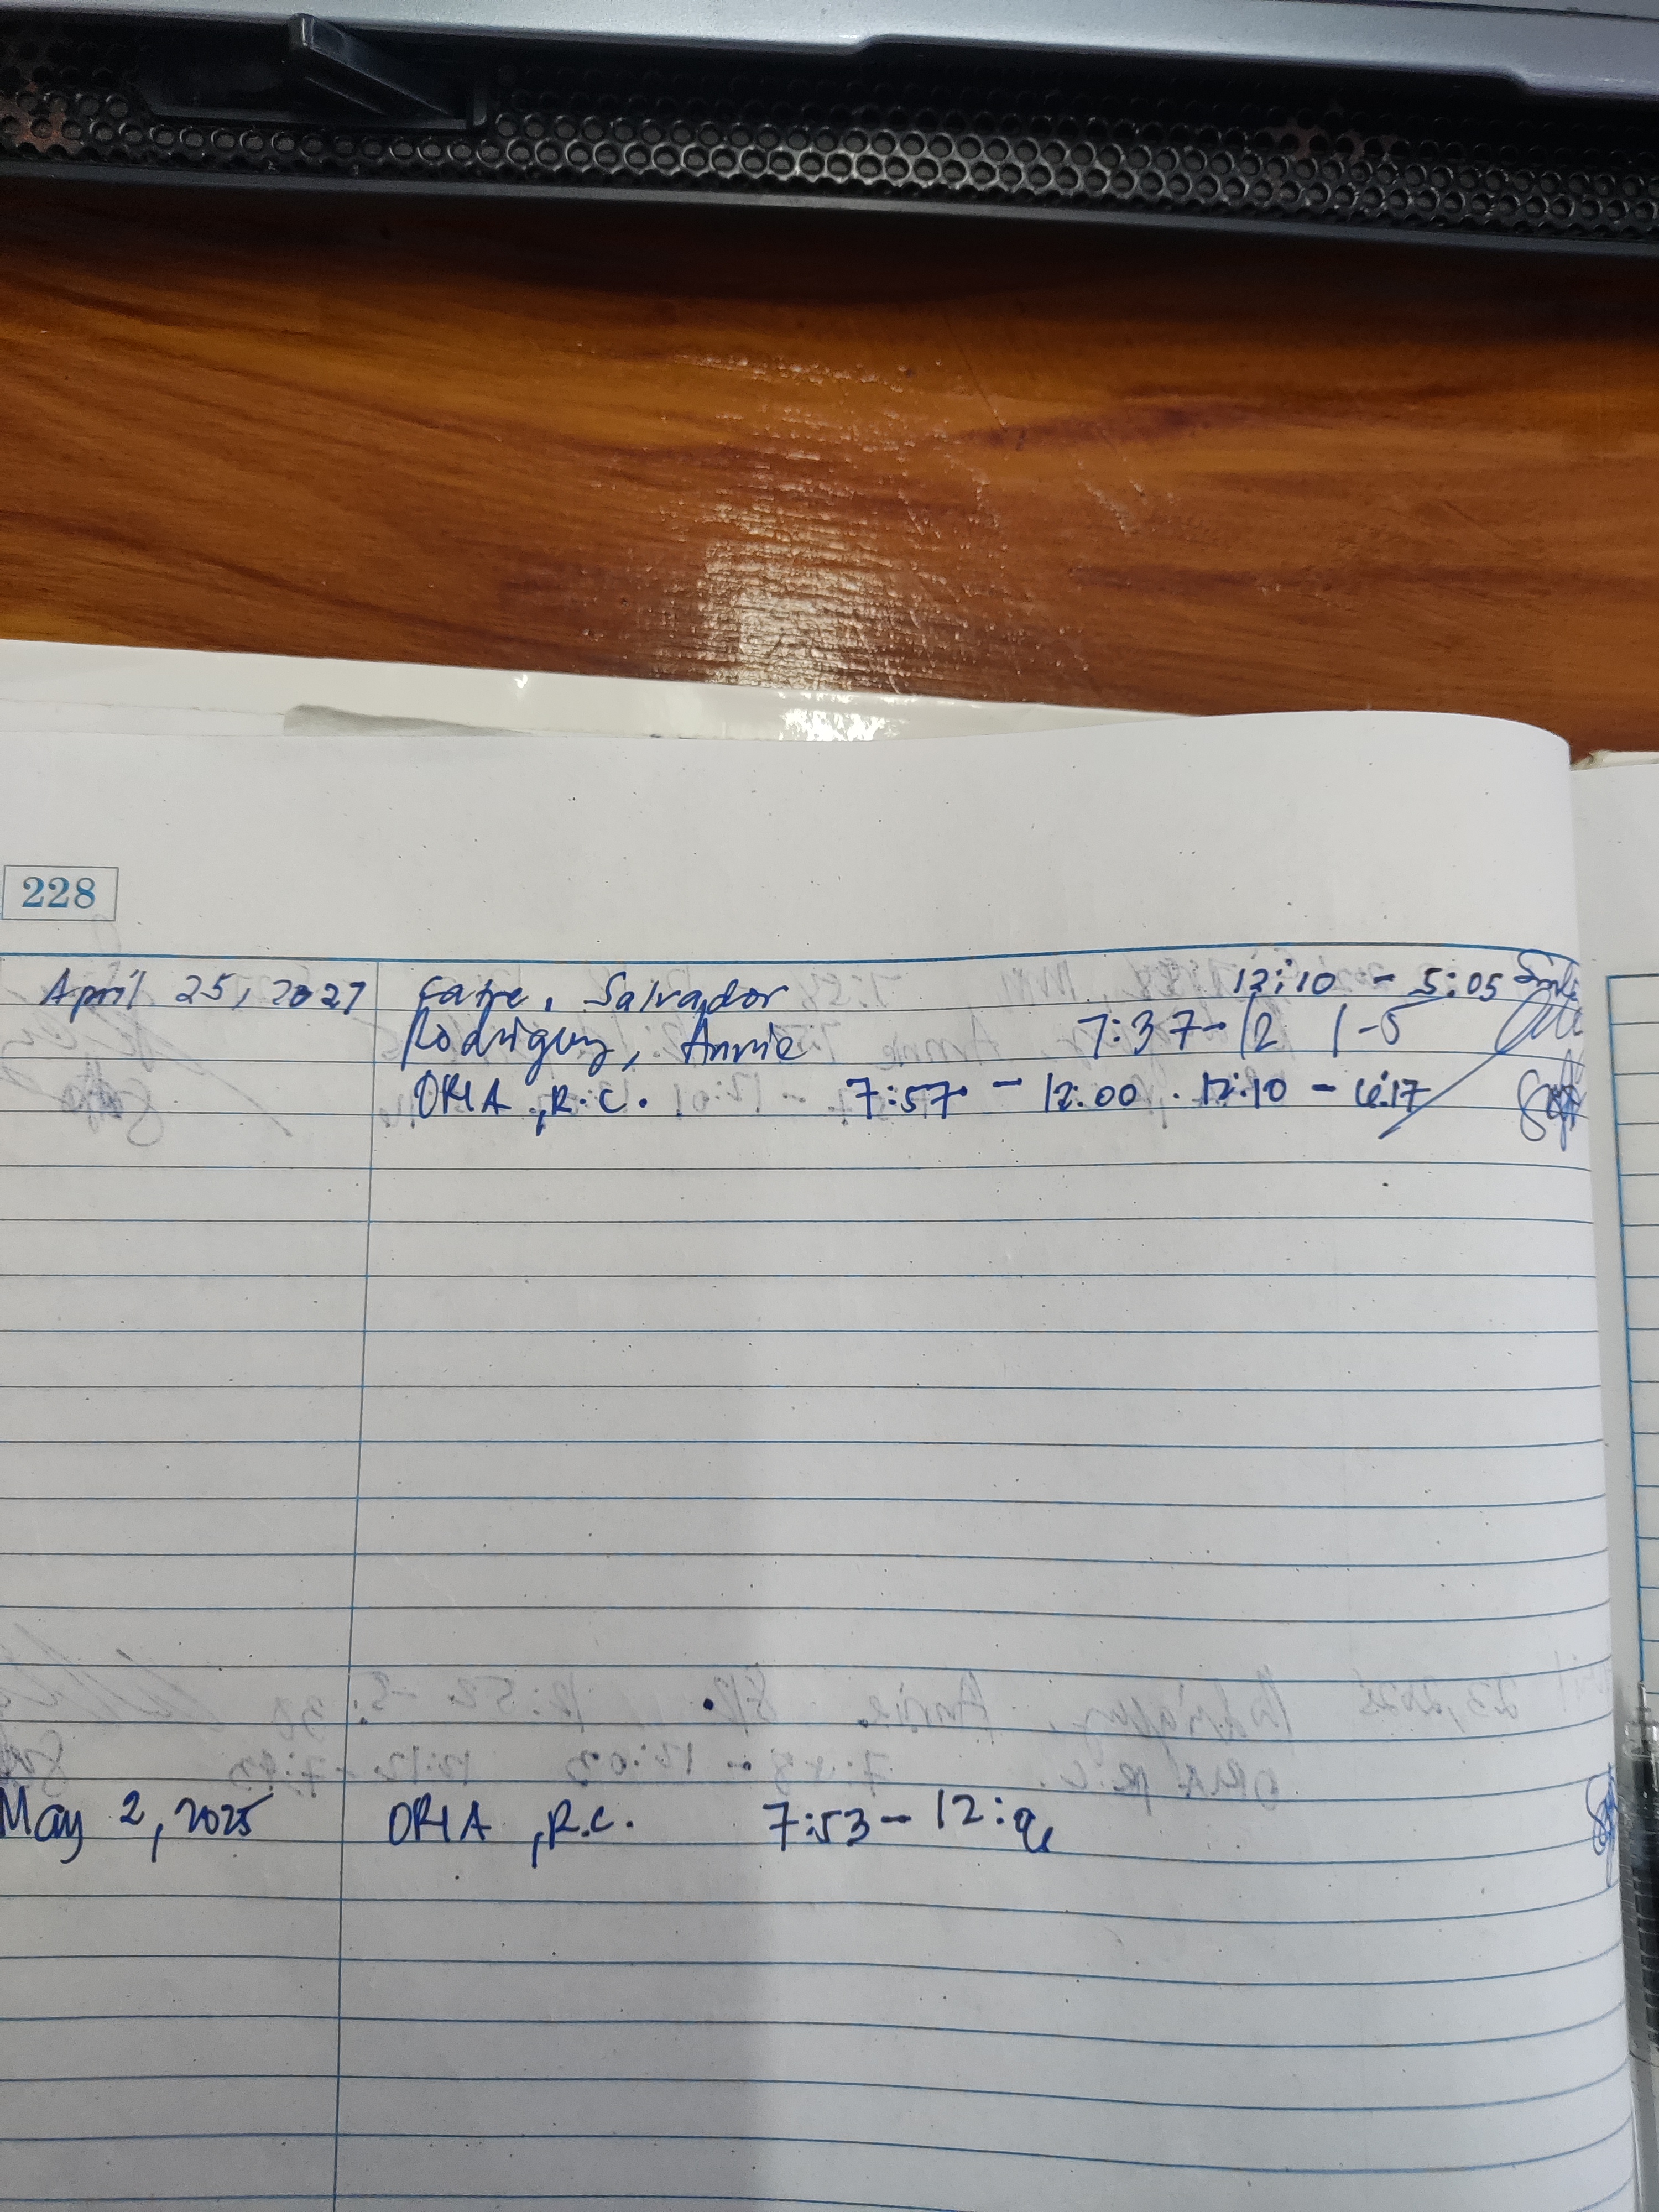 228
April 25, 2027 Salvador 12:10 - 5:05
Rodriguez, Annie 7:37-12 1-5
ORIA, R.C. 7:57 - 12:00 . 12:10 - 6:17
May 2, 2025 ORIA, R.C. 7:53 - 12: